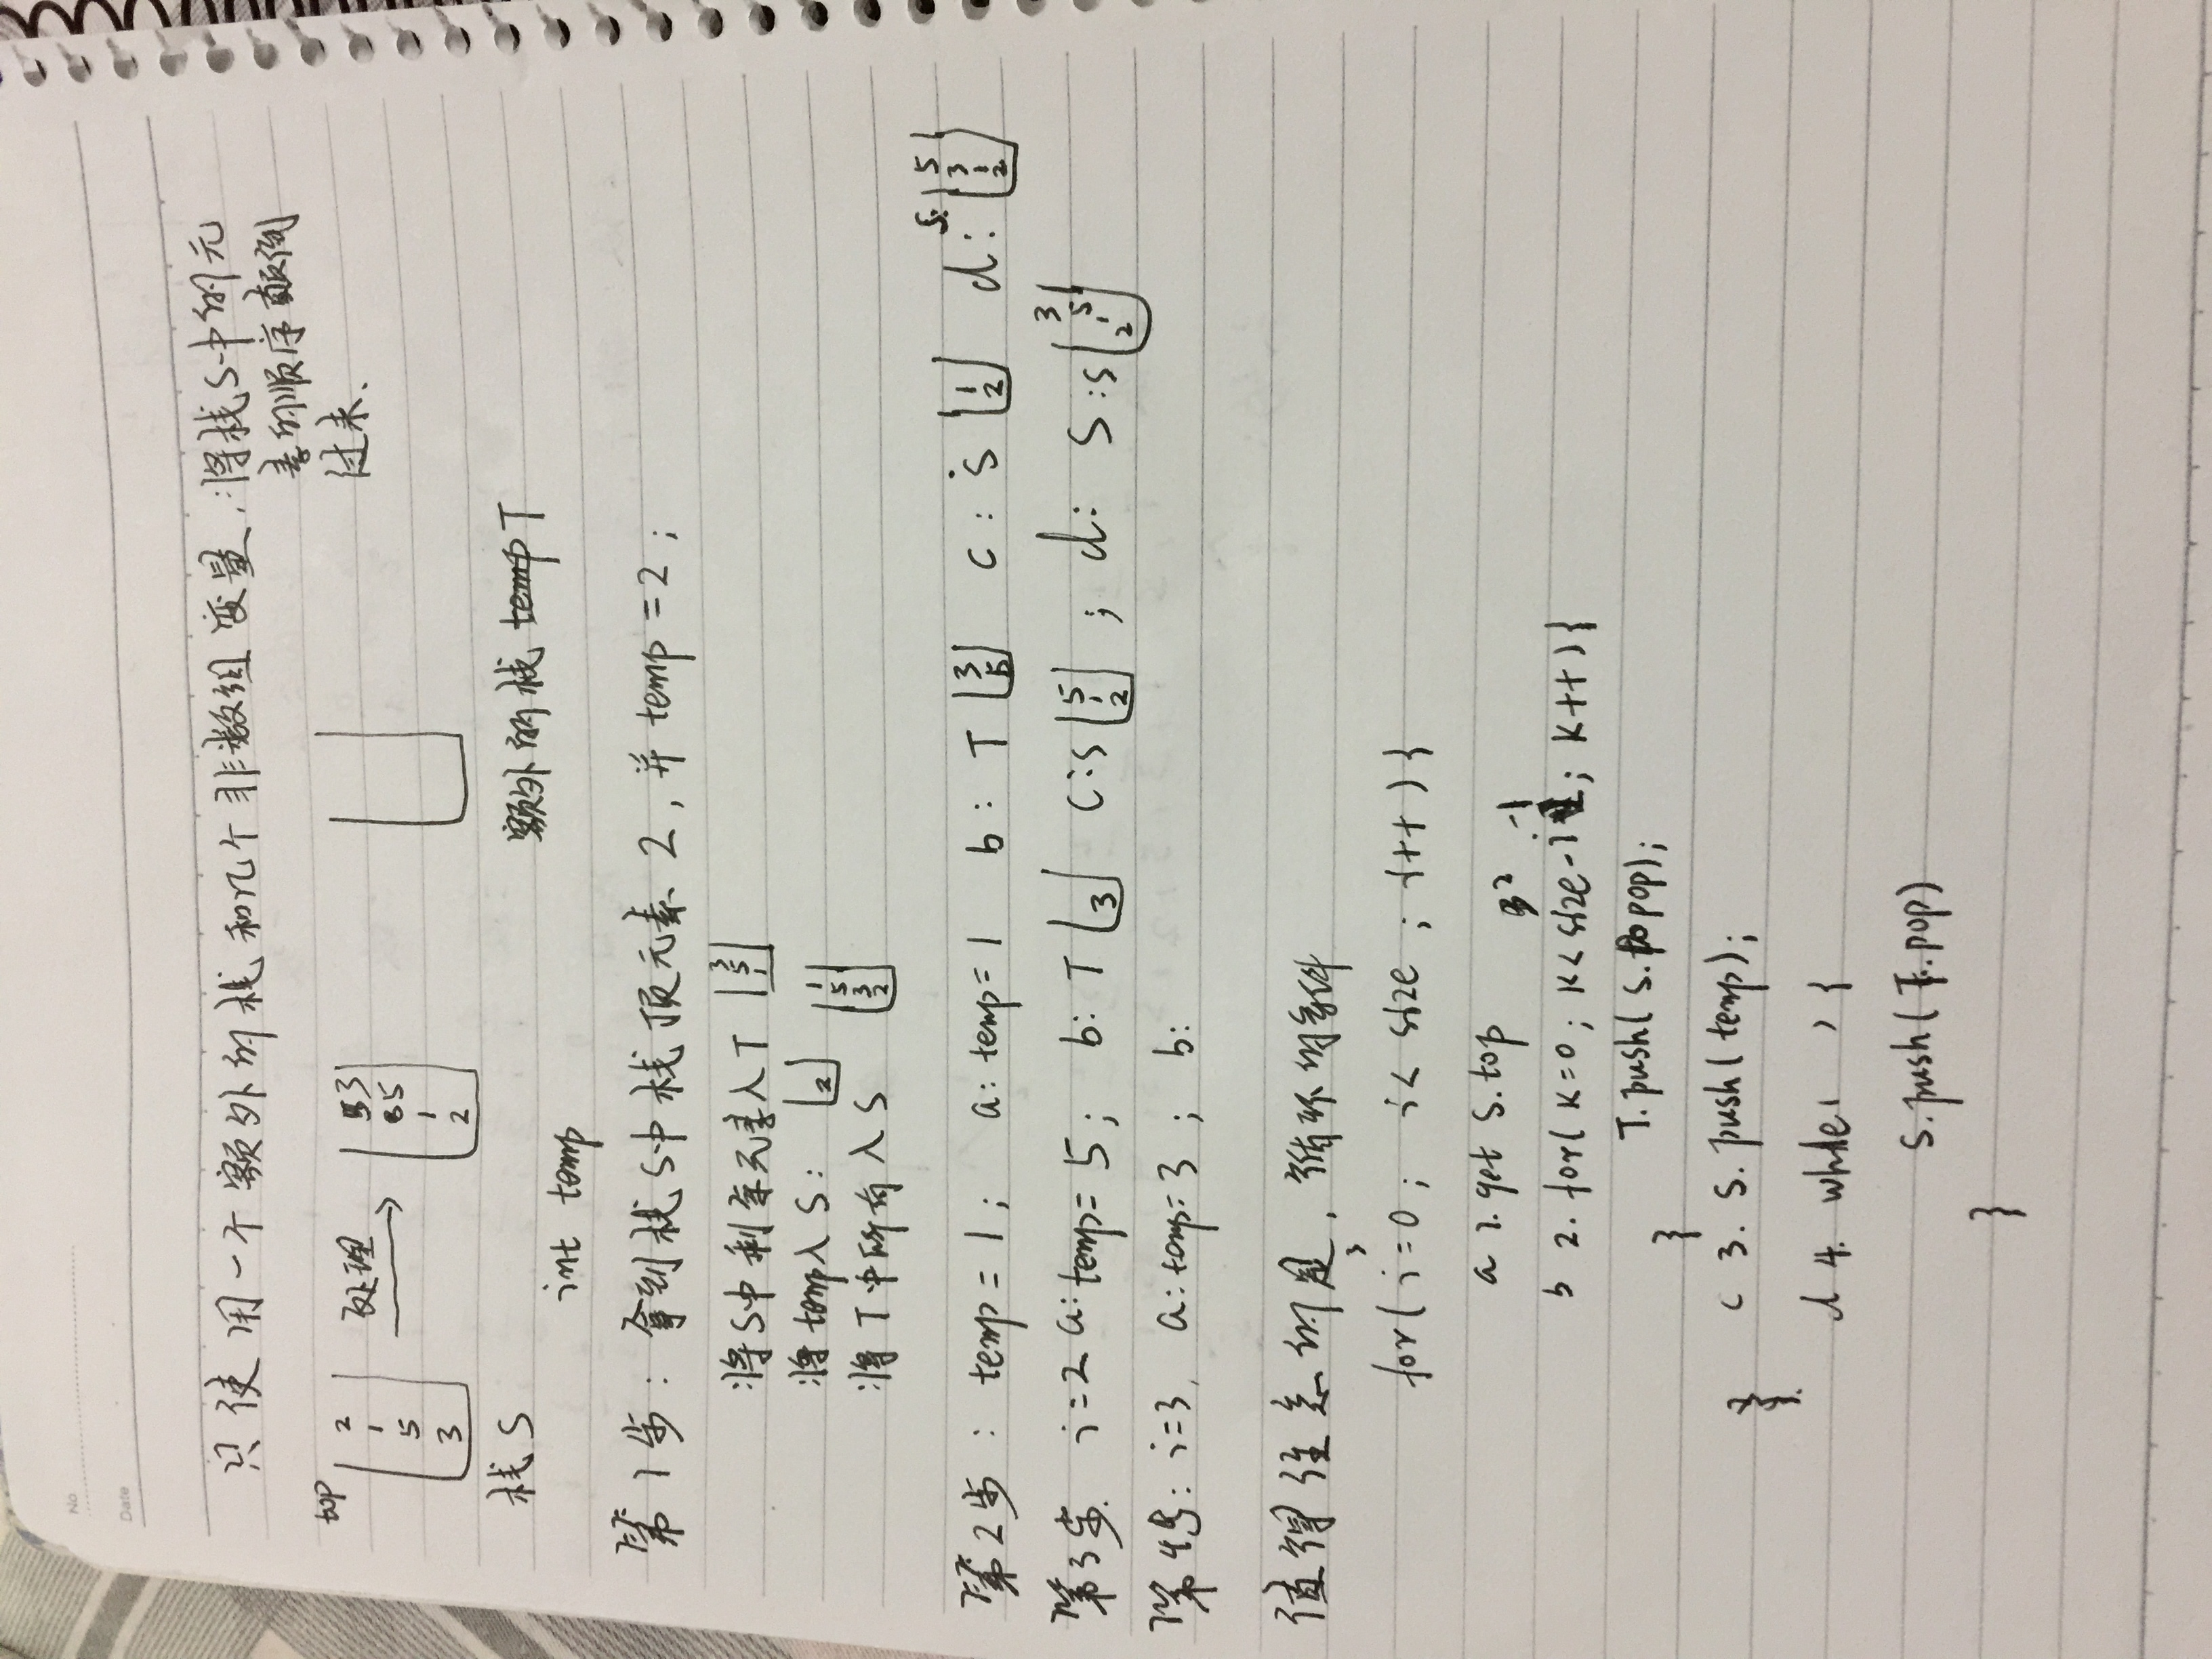 No
Date
只使用一个额外的栈和几个非数组变量,将栈S中的元
素的顺序颠倒
过来.
top
2
1
5
3
处理
3
5
1
2
栈 S
额外的栈 temp T
int temp
第1步: 拿到栈S中栈顶元素 2, 并 temp = 2;
将S中剩余元素入 T 3 5 1
将 temp入 S: 2
将 T 中所有入 S 1 5 3 2
第2步: temp = 1; a: temp = 1 b: T 3 5 c: S 1 2 d: S: 5 3 1 2
第3步. i=2 a: temp= 5; b: T 3 c: S 5 1 2 ; d: S: S 3 5 1 2
第4步: i=3, a: temp= 3 ; b:
值得注意的是, 循环的条件
3
for( i=0; i< size ; i++ ){
a 1. get S.top
2 -1
b 2. for( k=0; k< size-i ; k++ ){
T.push( S.pop);
}
c 3. S. push( temp);
}
d 4. while( ) {
S.push( T.pop)
}